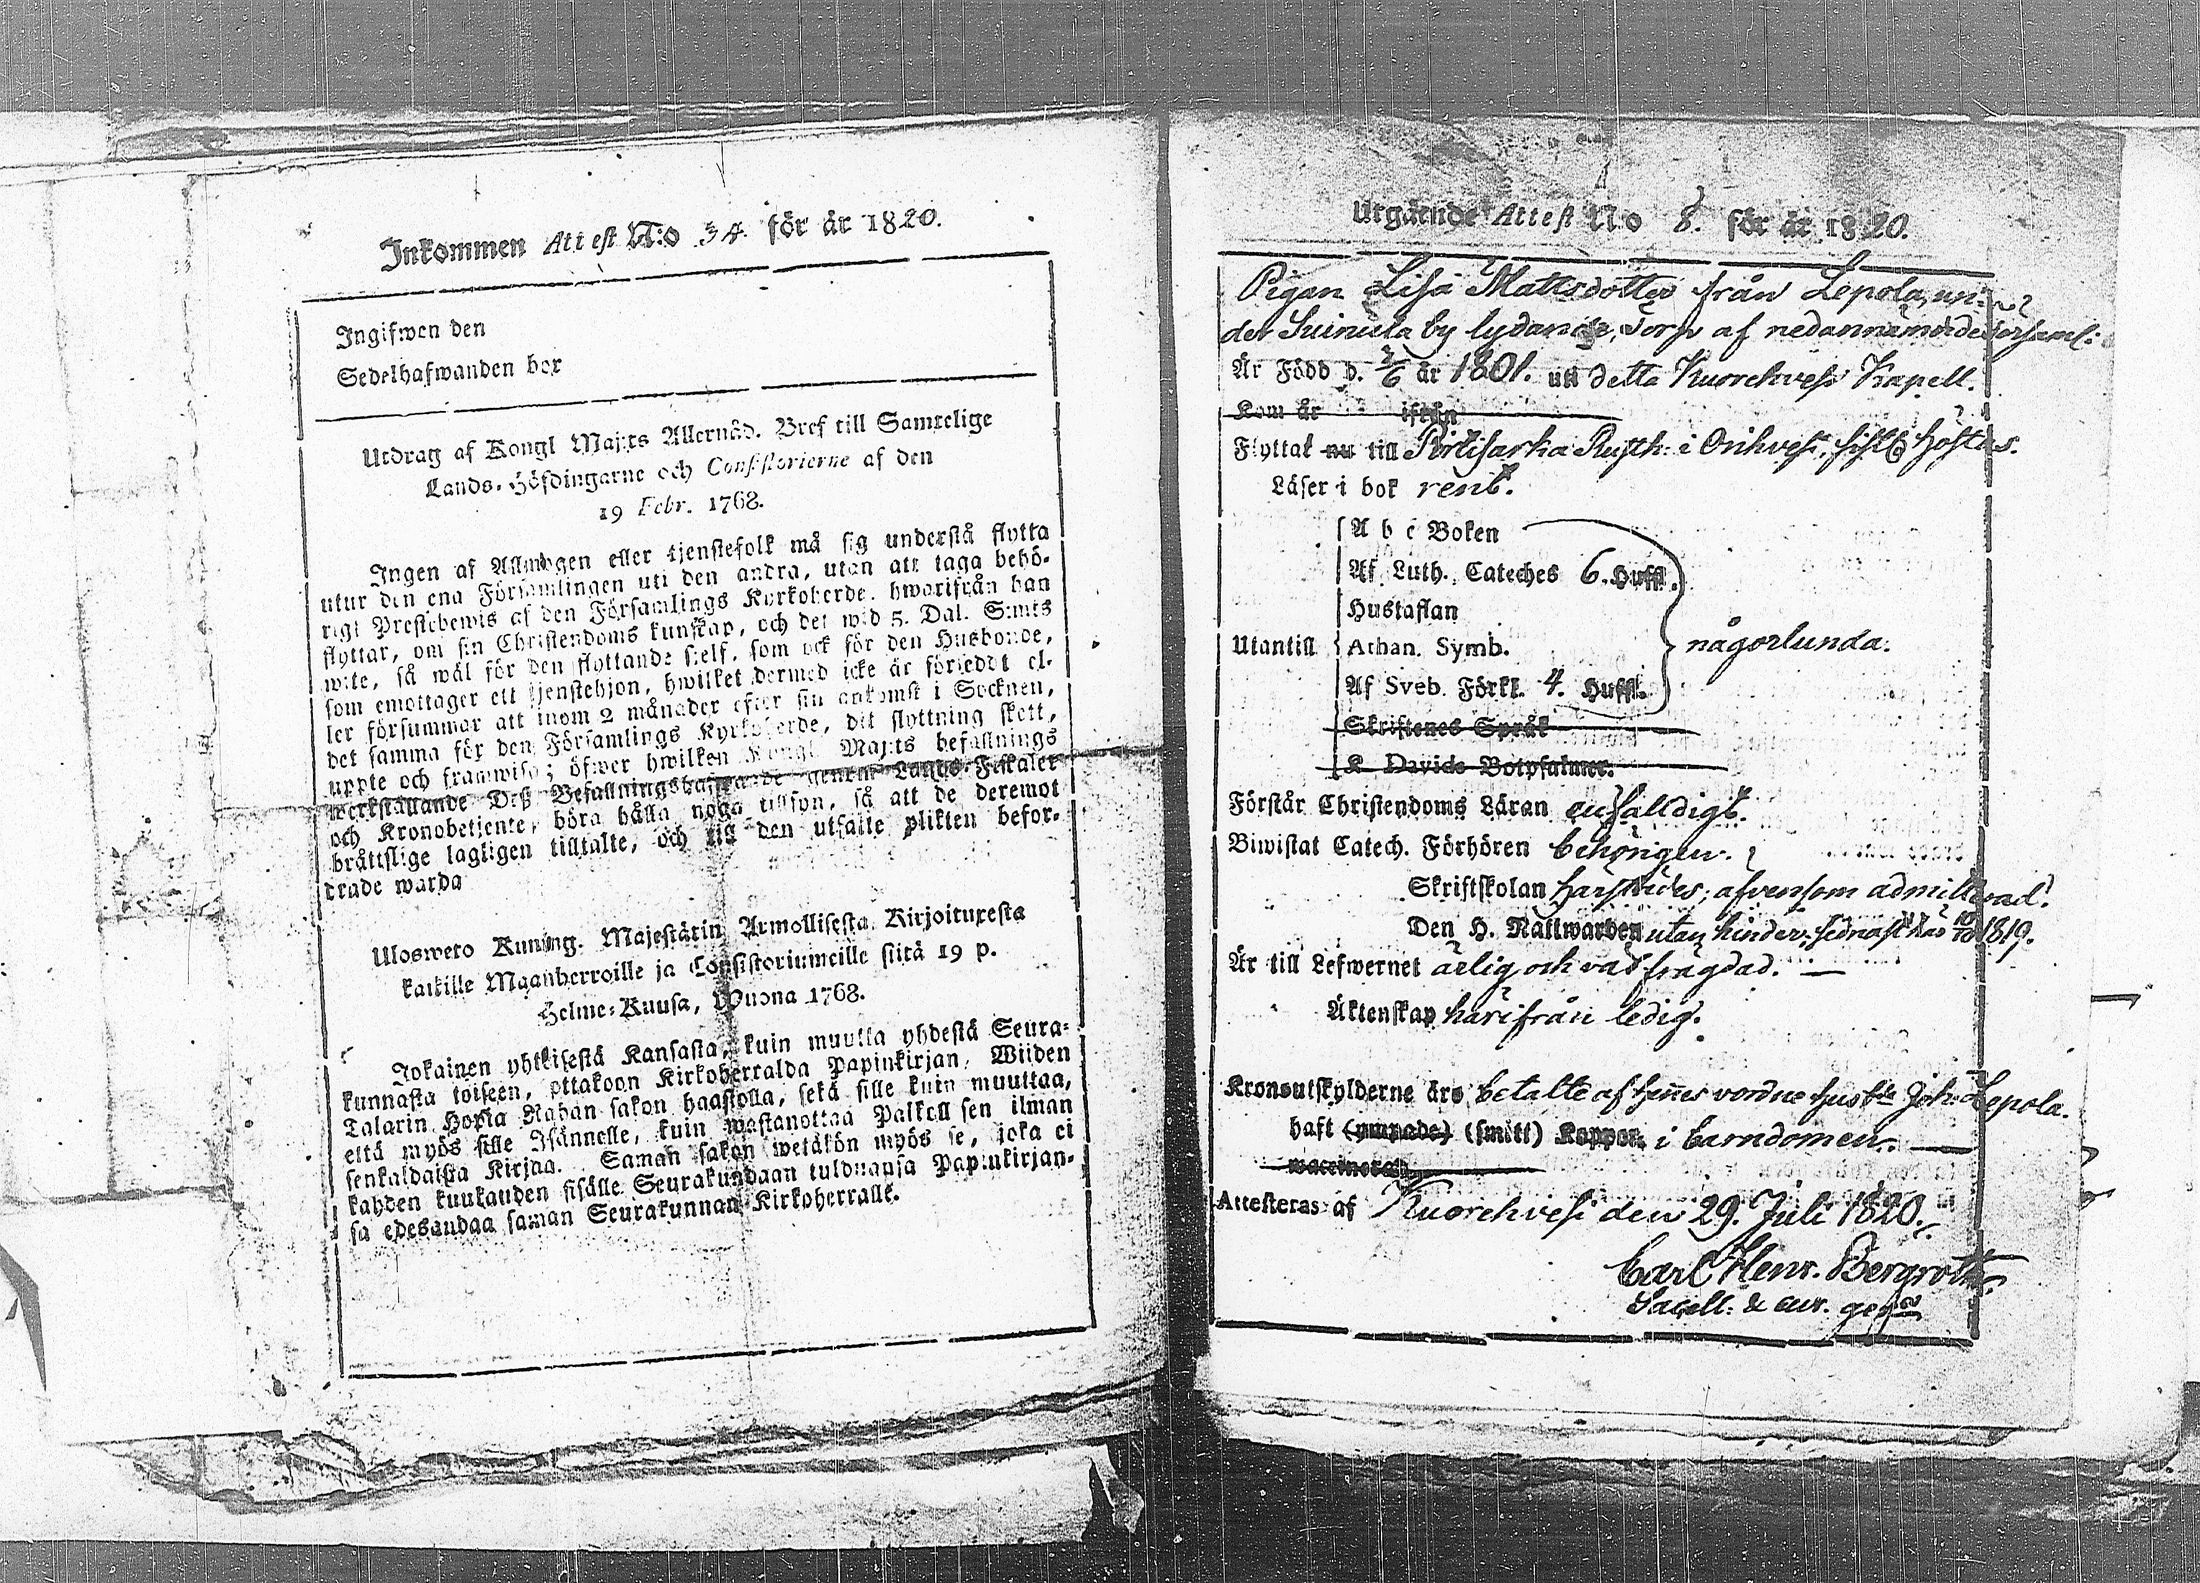 Inkommen Attest N:o 34. för är 1820.
Ingifwen den
Sedelhafwanden bor
Utdrag af Kongl Maj:ts Allernåd. Bref till Samtelige
Lands-Höfdingarne och Consistorierne af den
19 Febr. 1768.
Ingen af Allmogen eller tjenstefolk må sig understå flytta
utur den ena Församlingen uti den andra, utan att taga behö-
rigt Prestebewis af den Församlings Kyrkoherde, hwarifrån han
flyttar, om sin Christendoms kunskap, och det wid 5. Dal. S:mts
wite, så wäl för den flyttande sjelf, som ock för den Husbonde,
som emottager ett tjenstehjon, hwilket dermed icke är försedt el-
ler försummar att inom 2 månader efter sin ankomst i Socknen,
det samma för den Församlings Kyrkoherde, dit flyttning skett,
uppte och framwisa; öfwer hwilken Kongl Maj:ts befallnings
werkställande Deß Befallningshafwande genom Lands-Fiskaler
och Kronobetjente, böra hålla noga tillsyn, så att de deremot
bråttslige lagligen tilltalte, och till den utsatte plikten befor-
drade warda
Ulosweto Kuning. Majestätin Armollisesta Kirjoituxesta
kaikille Maanherroille ja Consistoriumeille siitä 19 p.
Helme-Kuusa, Wuona 1768.
Jokainen yhteisestä Kansasta, kuin muutta yhdestä Seura-
kunnasta toiseen, ottakoon Kirkoherralda Papinkirjan, Wiiden
Talarin Hopia Rahan sakon haastolla, sekä sille kuin muuttaa,
että myös sille Isännelle, kuin wastanottaa Palkoll sen ilman
senkaldaista Kirjaa. Saman sakon wetäkön myös se, joka ei
kahden kuukauden sisälle Seurakundaan tulduansa Papinkirjan-
sa edesandaa saman Seurakunnan Kirkoherralle.
Utgående Attest No 8. för är 1820.
Pigan Lisa Mattsdotter från Lepola, un-
der Suinula by lydande, Torp af nedannämnde Församl:
Är Född d. 3/6 är 1801. uti detta Kuorehvesi Kapell.
Kom är ifrån
Flyttat nu till Pirtisarka Rusth: i Orihvesi, sistl. höstas.
Läser i bok rent.
A b c Boken
Af Luth. Cateches 6. Huffl.
Hustaflan
Utantill Athan. Symb. någorlunda.
Af Sveb. Förkl. 4. Huffl.
Skriftenes Språk
K. Davids Botpsalmer.
Förstår Christendoms Läran enfalldigt.
Biwistat Catech. Förhören behörigen.
Skriftskolan härstädes; äfvensom admitterad.
Den H. Nattwarden utan hinder; sednast den 10/10 1819.
Är till Lefwernet ärlig och väl frägdad.
Äktenskap härifrån ledig.
Kronoutskylderne äro betalte af hennes vordne husb:de Joh: Lepola.
haft (ympade) (smått) Koppor i barndomen.
waccinerad
Attesteras af Kuorehvesi den 29. Juli 1820.
Carl Henr. Bergroth
Sacell: & cur. ger:s